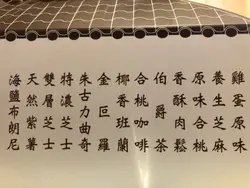 雞蛋原味
養生芝麻
原味合桃
香酥肉鬆
伯爵茶
合桃咖啡
椰香班蘭
金叵羅
朱古力曲奇
特濃芝士
雙層芝士
天然紫薯
海鹽布朗尼